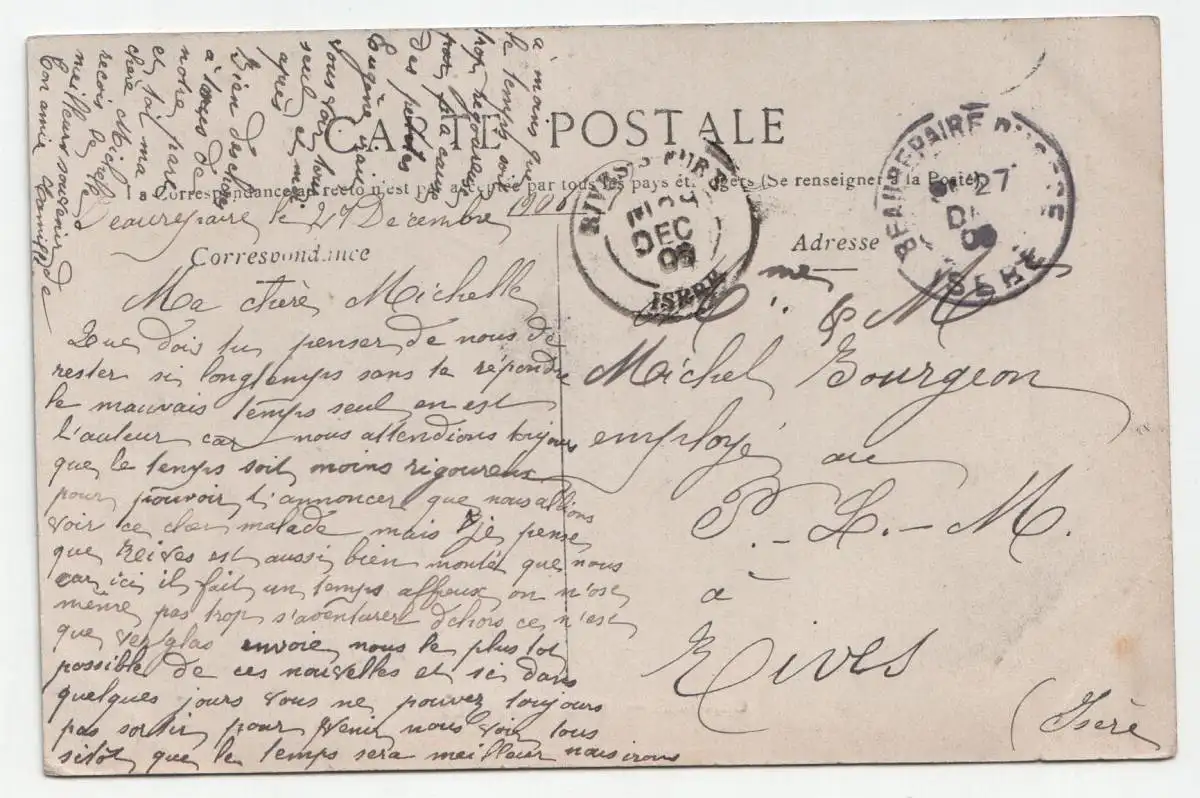 CARTE POSTALE
La Correspondance au recto n'est pas acceptée par tous les pays étrangers (Se renseigner à la Poste)
Correspondance
Adresse
BEAUREPAIRE D'ISERE
27
ISERE
RIVES SUR
DEC
ISERE
Beaurepaire le 27 Decembre
Ma chère Michelle
Que dois tu penser de nous de
rester si longtemps sans te répondre
le mauvais temps seul en est
l'auteur car nous attendions toujours
que le temps soit moins rigoureux
pour pouvoir t'annoncer que nous allions
voir ce cher malade mais je pense
que Reives est aussi bien montét que nous
car ici il fait un temps affreux on n'ose
même pas trop s'aventurer dehors ce n'est
que verglas envoie nous le plus tot
possible de ces nouvelles et si dans
quelques jours vous ne pouvez toujours
pas sortir pour venir nous voir tous
sitôt que le temps sera meilleur nous irons
vous voir tous
seul et même
après
Bien des choses
à tous de
notre part
et toi ma
chère Michelle
recois les
meilleurs souvenir de
ton amie Camille
à moins que
le temps soit
trop rigoureux
pour
des petites
Eugène irait
M. & Mme
Michel Bourgeon
employé au
P.-L.-M.
à
Rives
(Isère